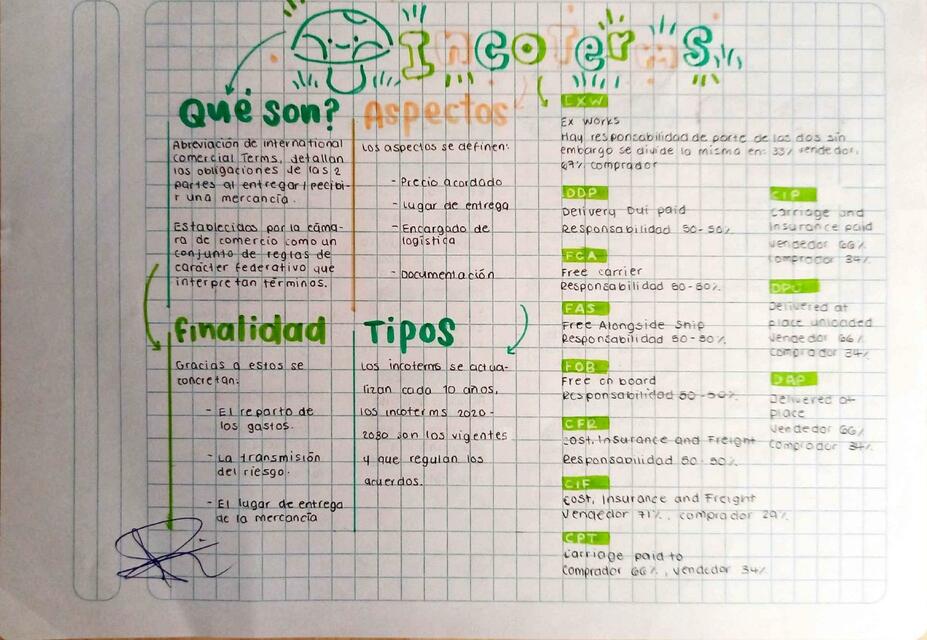 Incoterms
Qué son?
Abreviación de international
comercial Terms, detallan
las obligaciones de las 2
partes al entregar/recibi-
r una mercancía.
Establecidas por la cáma-
ra de comercio como un
conjunto de reglas de
carácter federativo que
interpretan términos.
Finalidad
Gracias a estos se
concretan:
- El reparto de
los gastos.
- La transmisión
del riesgo.
- El lugar de entrega
de la mercancía
Aspectos
Los aspectos se definen:
- Precio acordado
- Lugar de entrega
- Encargado de
logística
- Documentación
Tipos
Los incoterms se actua-
lizan cada 10 años,
los incoterms 2020-
2030 son los vigentes
y que regulan los
acuerdos.
EXW
Ex Works
Hay responsabilidad de parte de los dos sin
embargo se divide la misma en: 33% vendedor,
67% comprador
DDP
Delivery Dui paid
Responsabilidad 50-50%.
FCA
Free carrier
Responsabilidad 50-50%.
FAS
Free Alongside Ship
Responsabilidad 50-50%.
FOB
Free on board
Responsabilidad 50-50%.
CFR
Cost, Insurance and Freight
Responsabilidad 50-50%.
CIF
Cost, Insurance and Freight
Vendedor 71%, comprador 29%.
CPT
Carriage paid to
Comprador 66%, vendedor 34%
CIP
Carriage and
insurance paid
vendedor 66%
Comprador 34%
DPU
Delivered at
place unloaded
Vendedor 66%
Comprador 34%
DAP
Delivered at
place
Vendedor 66%
Comprador 34%